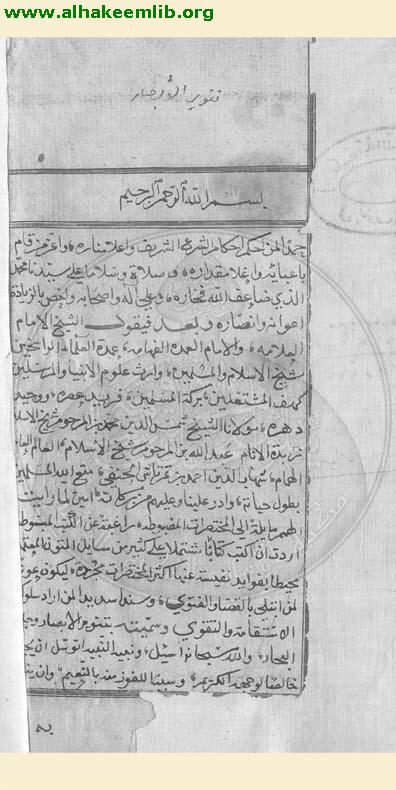 www.alhakeemlib.org
تنوير الأبصار
بسم الله الرحمن الرحيم
حمدا لمن احكم احكام الشرع الشريف واعلا مناره، واعز من قام
باعبائه واغلا مقداره، وصلاة وسلاما على سيدنا محمد
الذي ضاعف الله فخاره، وعلى آله واصحابه واخص بالزيادة
اعوانه وانصاره وبعد فيقول الشيخ الامام
العلامه، والامام العمدة الفهامه، عمدة العلماء الراسخين
شيخ الاسلام والمسلمين، وارث علوم الانبيا والمرسلين
كهف المشتغلين، بركة المسلمين، فريد عصره، ووحيد
دهره، مولانا الشيخ شمس الدين محمد بن المرحوم شيخ الاسلا
زبدة الانام عبد الله بن المرحوم شيخ الاسلام، العالم العا
الهمام، شهاب الدين احمد بن تمرتاش الحنفي، متع الله المسلمين
بطول حياته، وادر علينا وعليهم من بركاته، امين لما رايت
الهمم مايلة الى المختصرات المضبوطه، معرضة عن الكتب المبسوطه
اردت ان اكتب كتابا مشتملا على كثير من مسايل المتون المعتمد
محيطا بفوايد نفيسة عنها اكثر المختصرات مجرده، ليكون عونا
لمن ابتلي بالقضا والفتوى، وسندا سديدا لمن اراد سلو
الاستقامة والتقوى وسميته بتنوير الابصار وجا
البحار، والله سبحانه اسيل، ونبيه النبيه اتوسل ان يج
خالصا لوجهه الكريم، وسببا للفوز منه بالنعيم، وان ين
به